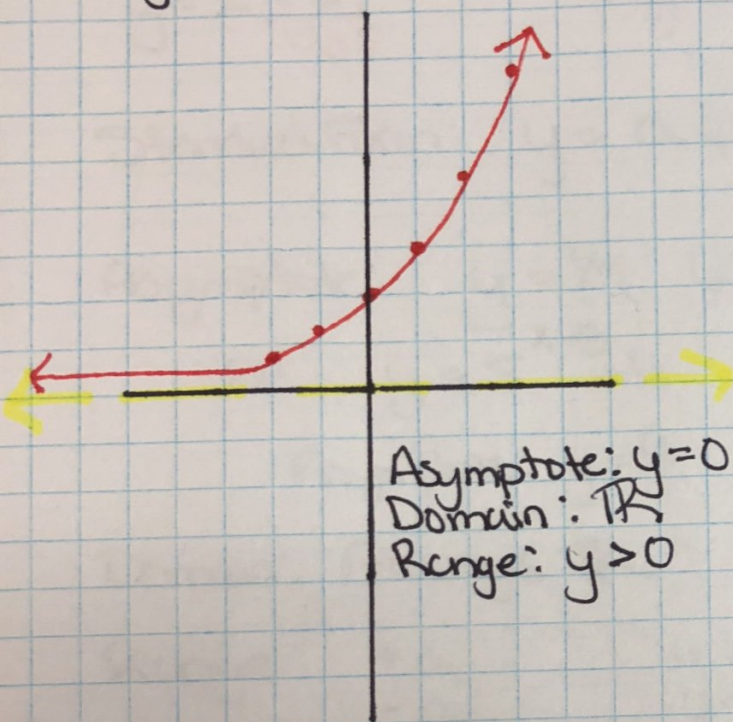 Asymptote: y=0
Domain: ℝ
Range: y>0